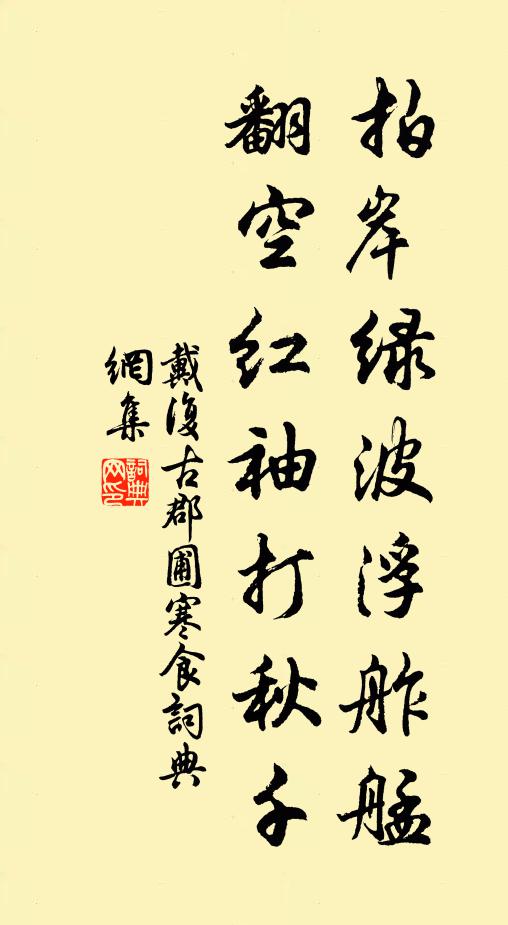 拍岸绿波浮舴艋
翻空红袖打秋千
戴復古郡圃寒食詞典
網集
詞典網印